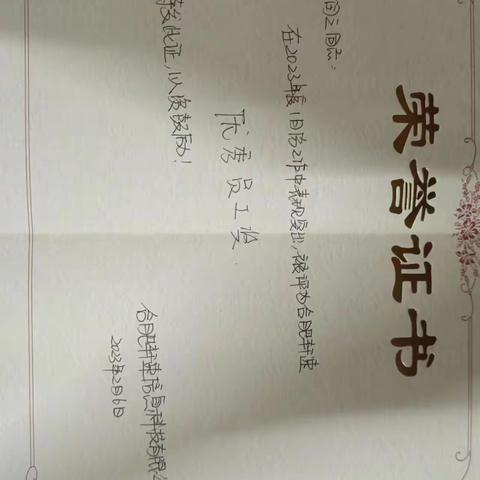 荣誉证书
同志:
在2023年度1日防工作中表现突出,被评为合肥轩速
优秀员工奖.
发此证,以资鼓励!
合肥轩速信息科技有限
2023年2月6日